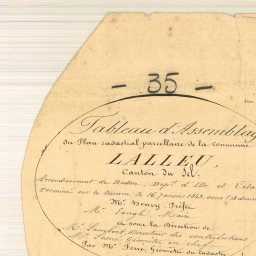 - 35 -
Tableau d'Assemblag
du Plan cadastral parcellaire de la commune
LALLEU,
Canton du Sel.
Arrondissement de Redon, Dépt. d'Ille et Vila
Terminé sur le terrain le 16 janvier 1843, sous l'admin
Mr. Henry Préfet
Mr. Maire
et sous la direction de
Mr. Directeur des contributions
Géomètre en chef
Par Mr. Géomètre du Cadastre